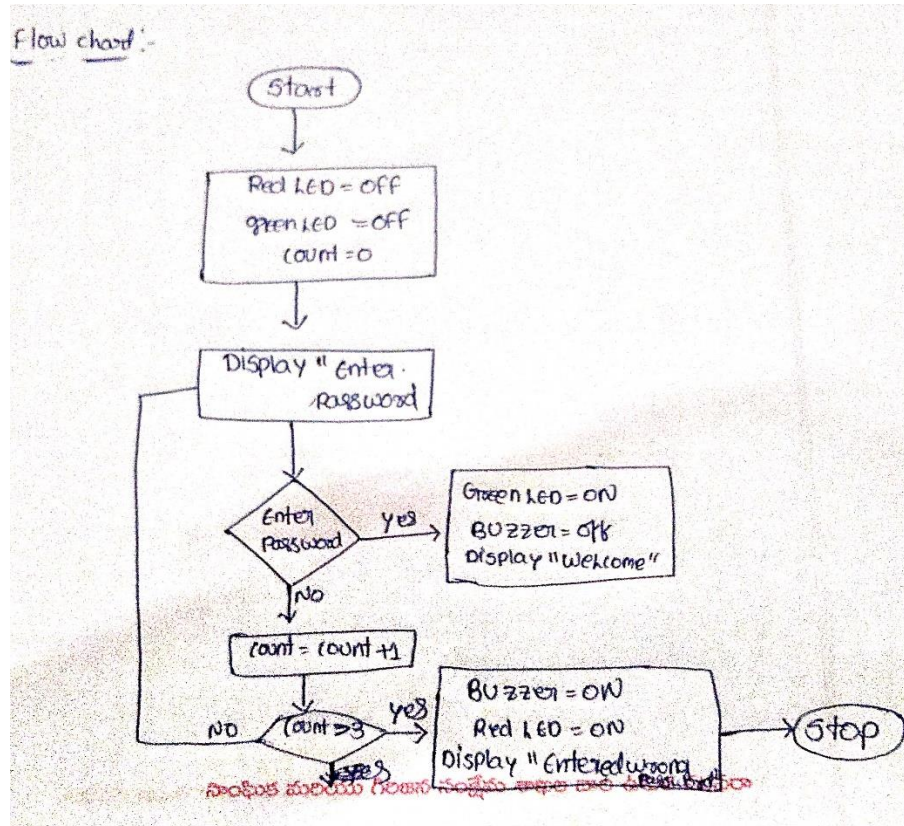 Flow chart:-
Start
Red LED = OFF
green LED = OFF
count = 0
Display "Enter.
password
Enter
password
yes
Green LED = ON
BUZZER = Off
Display "Welcome"
NO
count = count +1
NO
Count >3
yes
BUZZER = ON
Red LED = ON
Display "Entered wrong
Stop
సాంఘిక మరియు గిరిజన సంక్షేమ